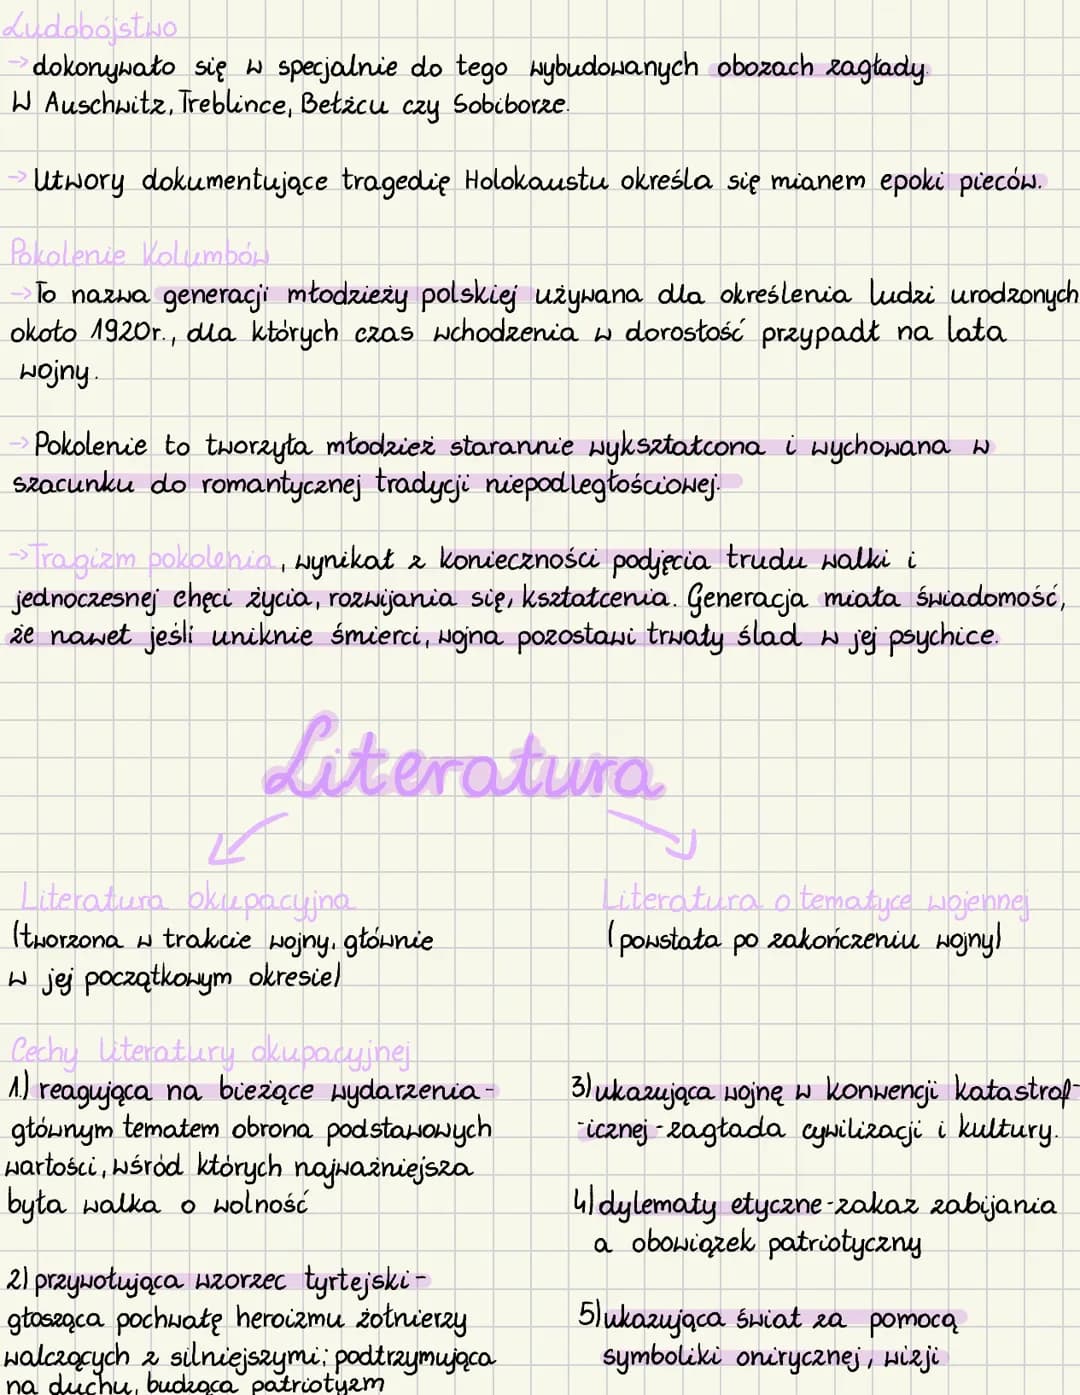 Ludobójstwo
→dokonywało się w specjalnie do tego wybudowanych obozach zagłady.
W Auschwitz, Treblince, Bełżcu czy Sobiborze.
→Utwory dokumentujące tragedię Holokaustu określa się mianem epoki pieców.
Pokolenie Kolumbów
→To nazwa generacji młodzieży polskiej używana dla określenia ludzi urodzonych
około 1920r., dla których czas wchodzenia w dorosłość przypadł na lata
wojny.
→Pokolenie to tworzyła młodzież starannie wykształcona i wychowana w
szacunku do romantycznej tradycji niepodległościowej.
→Tragizm pokolenia, wynikał z konieczności podjęcia trudu walki i
jednoczesnej chęci życia, rozwijania się, kształcenia. Generacja miała świadomość,
że nawet jeśli uniknie śmierci, wojna pozostawi trwały ślad w jej psychice.
Literatura
Literatura okupacyjna
(tworzona w trakcie wojny, głównie
w jej początkowym okresie)
Literatura o tematyce wojennej
(powstała po zakończeniu wojny)
Cechy literatury okupacyjnej
1.) reagująca na bieżące wydarzenia-
głównym tematem obrona podstawowych
wartości, wśród których najważniejsza
była walka o wolność
2) przywołująca wzorzec tyrtejski-
głosząca pochwałę heroizmu żołnierzy
walczących z silniejszymi; podtrzymująca
na duchu, budząca patriotyzm
3) ukazująca wojnę w konwencji katastrof-
-icznej-zagłada cywilizacji i kultury.
4) dylematy etyczne-zakaz zabijania
a obowiązek patriotyczny
5) ukazująca świat za pomocą
symboliki onirycznej, wizji